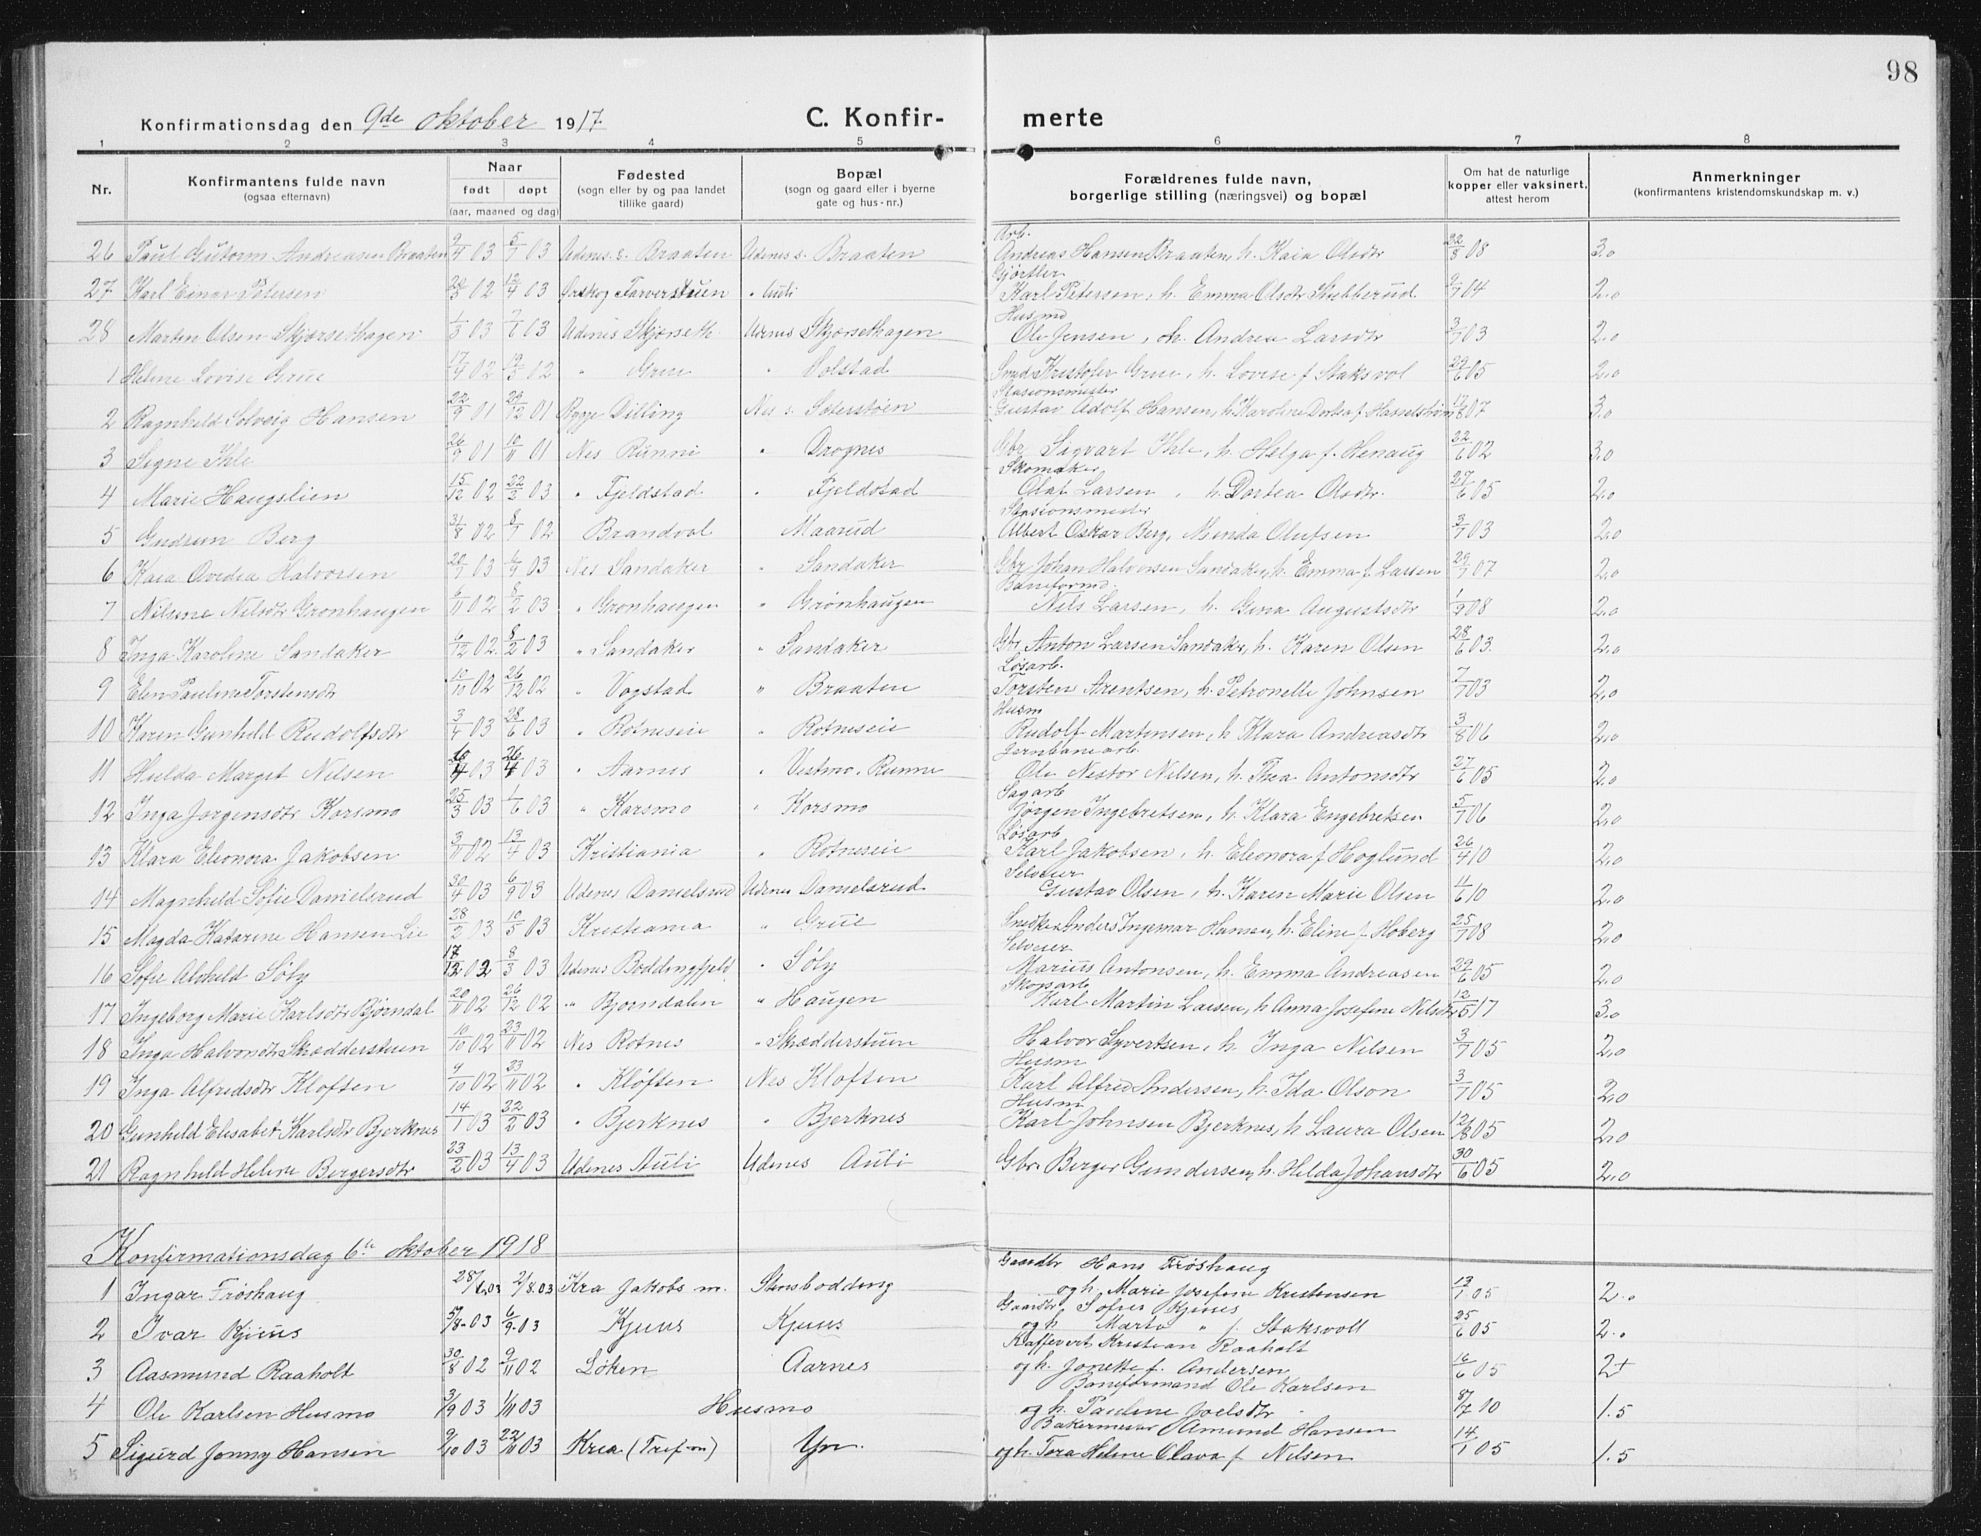 98
Konfirmationsdag den 9de oktober 1917 C. Konfir- merte
1 2 3 4 5 6 7 8
Nr. Konfirmantens fulde navn (ogsaa efternavn) Naar født døpt (aar, maaned og dag) Fødested (sogn eller by og paa landet tillike gaard) Bopæl (sogn og gaard eller i byerne gate og hus-nr.) Forældrenes fulde navn, borgerlige stilling (næringsvei) og bopæl Om hat de naturlige kopper eller vaksinert, attest herom Anmerkninger (konfirmantens kristendomskundskap m. v.)
Arb.
26 Paul Gutorm Andreasen Braaten 9/4 03 5/7 03 Udenes s. Braaten Udenes s. Braaten Andreas Hansen Braaten, h. Kaia Olsdtr 22/8 08 3.0
Gjørtler
27 Karl Einar Petersen 02 12/4 03 Ørskog Farverstuen " Auli Karl Petersen, h. Emma Olsdtr Stubberud 9/7 04 2.0
Husmd
28 Martin Olsen Skjørsethagen 1/3 03 7/6 03 Udenes Skjørseth Udenes Skjørsethagen Ole Jensen, h. Andrea Larsdtr 3/7 03 2.0
1 Helene Lovise Grue 17/4 02 19/3 02 " Grue " Volstad Smed Kristofer Grue, h. Lovise f. Staksvol 29/6 05 2.0
Stasionsmester
2 Ragnhild Solveig Hansen 22/9 01 29/12 01 Rygge Dilling Nes s. Sæterstøen Gustav Adolf Hansen, h. Karoline Dortea f. Hasselstrøm 17/8 07 3.0
3 Signe Ihle 26/9 01 10/11 01 Nes Runni " Drognes Gbr Sigvart Ihle, h. Helga f. Henaug 22/6 02 3.0
Skomaker
4 Marie Haugslien 15/12 02 22/2 03 " Fjeldstad " Fjeldstad Olaf Larsen, h. Dortea Olsdtr. 27/6 05 2.0
Stasionsmester
5 Gudrun Berg 31/8 02 8/7 02 Brandval Maarud Albert Oskar Berg, Minda Olufsen 3/7 03 2.0
6 Kaia Ovedea Halvorsen 20/7 03 6/9 03 Nes Sandaker " Sandaker Gbr Johan Halvorsen Sandaker, h. Emma f. Larsen 29/7 07 2.0
Baneformd.
7 Nilsine Nilsdtr Grønhaugen 6/11 02 8/2 03 " Grønhaugen " Grønhaugen Nils Larsen, h. Gina Augustsdtr 1/9 08 2.0
8 Inga Karoline Sandaker 6/12 02 8/2 03 " Sandaker " Sandaker Gbr Anton Larsen Sandaker, h. Karen Olsen 28/6 03 2.0
Løsarb.
9 Elen Pauline Torstensdtr 10/10 02 26/12 02 " Vogstad " Braaten Torsten Arentsen, h. Petronelle Johnsen 7/7 03 2.0
Husm
10 Karen Gunhild Rudolfsdtr 3/4 03 28/6 03 " Rotneseie " Rotneseie Rudolf Martinsen, h. Klara Andreasdtr 3/8 06 2.0
Jernbanearb
11 Hulda Margit Nilsen 03 26/4 03 " Aarnes " Vestmo, Runni Ole Nestor Nilsen, h. Thea Antonsdtr 27/6 05 2.0
Sagarb
12 Inga Jørgensdtr Korsmo 25/3 03 1/6 03 " Korsmo " Korsmo Jørgen Ingebretsen, h. Klara Engebretsen 5/7 06 2.0
Løsarb
13 Klara Eleonora Jakobsen 3/11 02 13/4 03 Kristiania " Rotneseie Karl Jakobsen, h. Eleonora f. Høglund 26/4 10 2.0
Selveier
14 Magnhild Sofie Danielsrud 30/4 03 6/9 03 Udenes Danielsrud Udenes Danielsrud Gustav Olsen, h. Karen Marie Olsen 11/6 10 2.0
15 Magda Katarine Hansen Lie 28/2 03 10/5 03 Kristiania " Grue Snedker Anders Ingemar Hansen, h. Eline f. Hoberg 25/7 08 2.0
Selveier
16 Sofie Alvhild Søly 17/12 02 8/3 03 Udenes Boddingfjeld " Søly Marius Antonsen, h. Emma Andreasen 29/6 05 2.0
Skogsarb
17 Ingeborg Marie Karlsdtr Bjørndal 20/11 02 26/12 02 " Bjørndalen " Haugen Karl Martin Larsen, h. Anna Josefine Nilsdtr 12/5 17 3.0
18 Inga Halvorsdtr Skrædderstuen 10/10 02 23/11 02 Nes Rotnes " Skrædderstuen Halvor Syvertsen, h. Inga Nilsen 3/7 05 2.0
Husm
19 Inga Alfredsdtr Kløften 9/10 02 23/11 02 " Kløften Nes Kløften Karl Alfred Andersen, h. Ida Olson 3/7 05 2.0
Husm
20 Gunhild Elisabet Karlsdtr Bjerknes 14/1 03 22/2 03 " Bjerknes " Bjerknes Karl Johnsen Bjerknes, h Laura Olsen 12/8 05 2.0
21 Ragnhild Helene Bergersdtr 23/2 03 13/4 03 Udenes Auli Udenes Auli Gbr. Berger Gundersen, h. Hilda Johansdtr 30/6 05 2.0
Konfirmationsdag 6te oktober 1918
Gaardbr Hans Frøshaug
1 Ingar Frøshaug 28/6 03 2/8.03 Kra Jakobs m. Stensbodding og h. Marie Josefine Kristensen 13/1 05 2.0
Gaardbr Sofus Kjuus
2 Ivar Kjuus 5/8-03 6/9-03 Kjuus Kjuus og h. Marta " f. Staksvoll 25/6 05 2.0
Kaffevert Kristian Raaholt
3 Aasmund Raaholt 30/8 02 9/11 02 Løken Aarnes og h. Jonette f. Andersen 16/6 05 2+
Baneformand Ole Karlsen
4 Ole Karlsen Husmo 3/9 03 1/11 03 Husmo og h. Pauline Joelsdtr 8/7 10 1.5
Bakermester Almund Hansen
5 Sigurd Jonny Hansen 9/10 03 22/11 03 Kria (Tref-m) Yn. og h. Tora Helene Olava f Nilsen 14/1 05 1.5